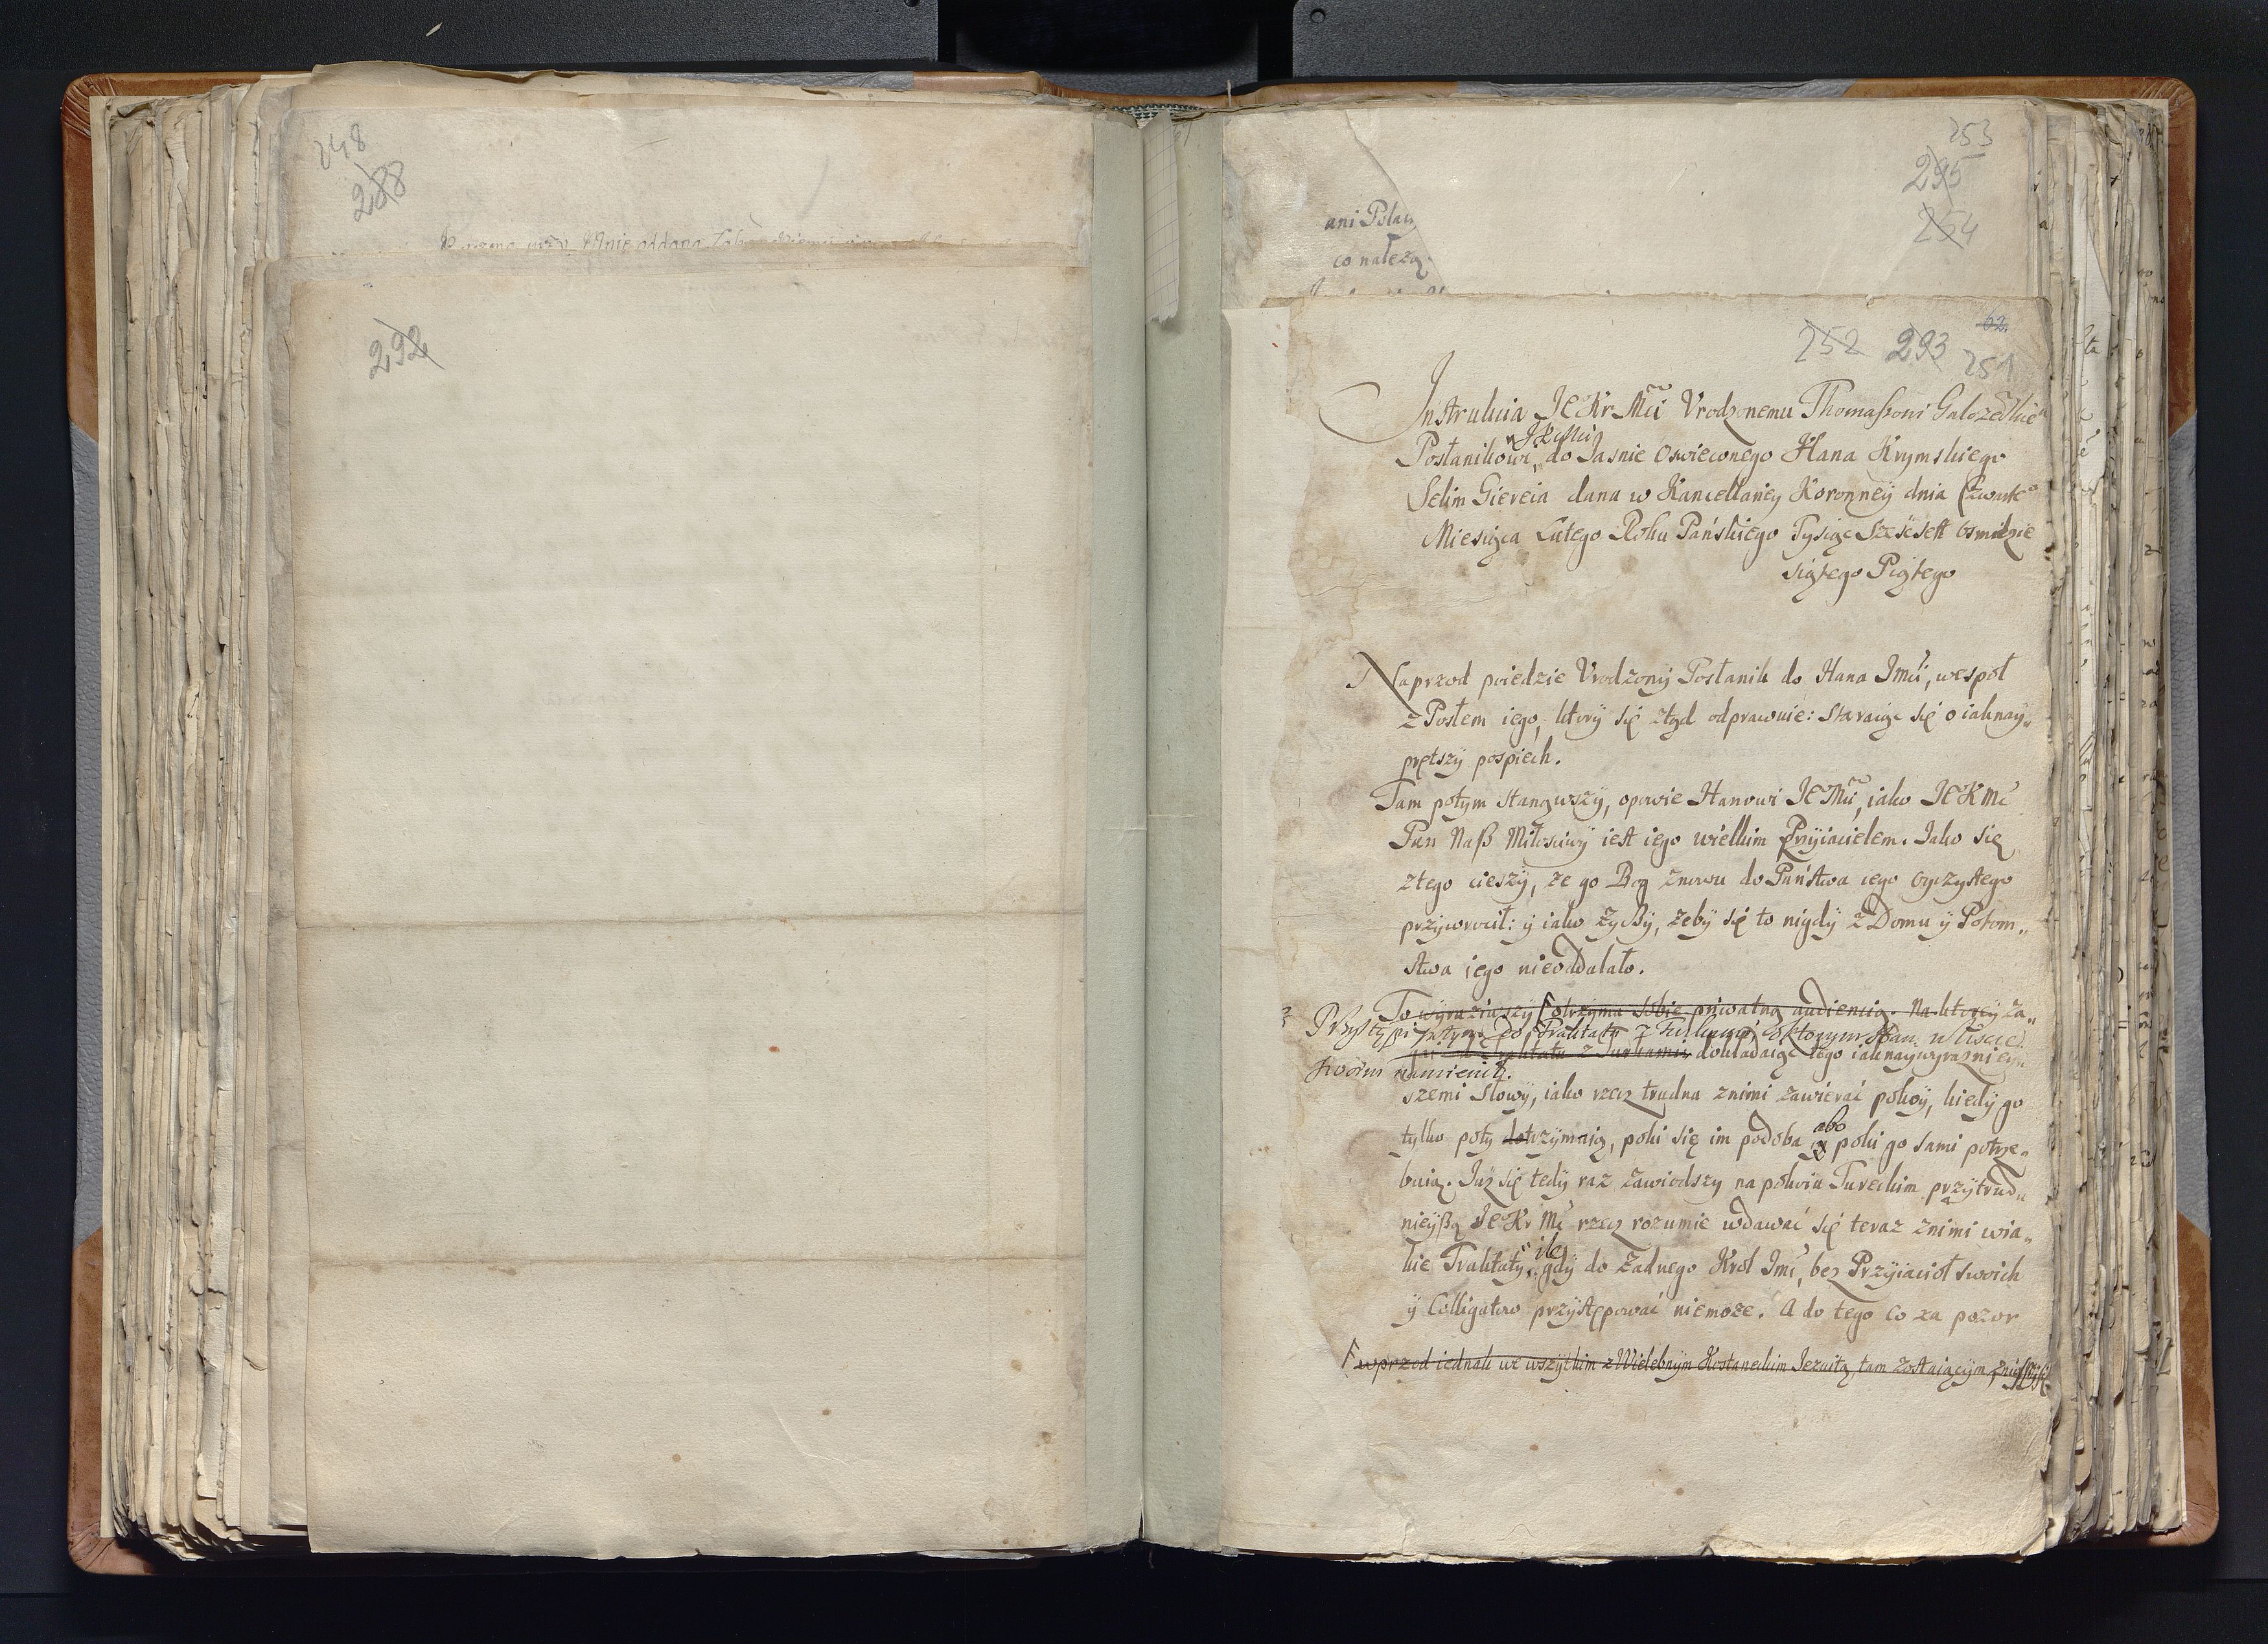 248
288
292
253
295
254
ani Polacy
co należą
252 293 62.
251
Instrukcia JEKr Mći Vrodzonemu Thomaszowi
Posłanikowi JKrMći, do Jasnie Oswieconego Hana Krymskiego
Selim Giereia dana w Kancellariey Koronney dnia Czwarte°
Miesiąca Lutego Roku Pańskiego Tysiąc Szescset Osmdzie
siątego Piątego
Naprzod poiedzie Vrodzony Posłanik do Hana Jmći, wespoł
z Posłem iego, ktory się ztąd odprawuie: staraiąc się o iaknay„
prętszy pospiech.
Tam potym stanąwszy, opowie Hanowi JEMći, iako JEKMć
Pan Nasz Miłosciwy iest iego wielkim Przyiacielem. Jako się
z tego cieszy, że go Bog znowu do Państwa iego Oyczystego
przywrocił: y iako życzy, żeby się to nigdy z Domu y Potom„
stwa iego nieoddalało.
To wyraziwszy otrzyma sobie priwatną audiencią. Na ktorey za„
Przystąpi potym do Traktatu z Turkami, o ktorym Han w liscie
gai Traktatu z Turkami dokładaiąc tego iaknaywyrazniey„
swoim namienił.
szemi słowy, iako rzecz trudna znimi zawierać pokoy, kiedy go
tylko poty dotrzymaią, poki się im podoba abo poki go sami potrze„
buią. Juz się tedy raz zawiodszy na pokoiu Tureckim przytrud„
nieyszą JEKr Mć rzecz rozumie wdawać się teraz znimi wia„
kie Traktaty, ile gdy do żadnego Krol Jmć, bez Przyiacioł swoich
y Colligatow przystępować niemoże. A do tego co za pozor
wprzod iednak we wszytkim z Wielebnym Kostaneckim Jezuitą tam zostaiącym zniosszy się